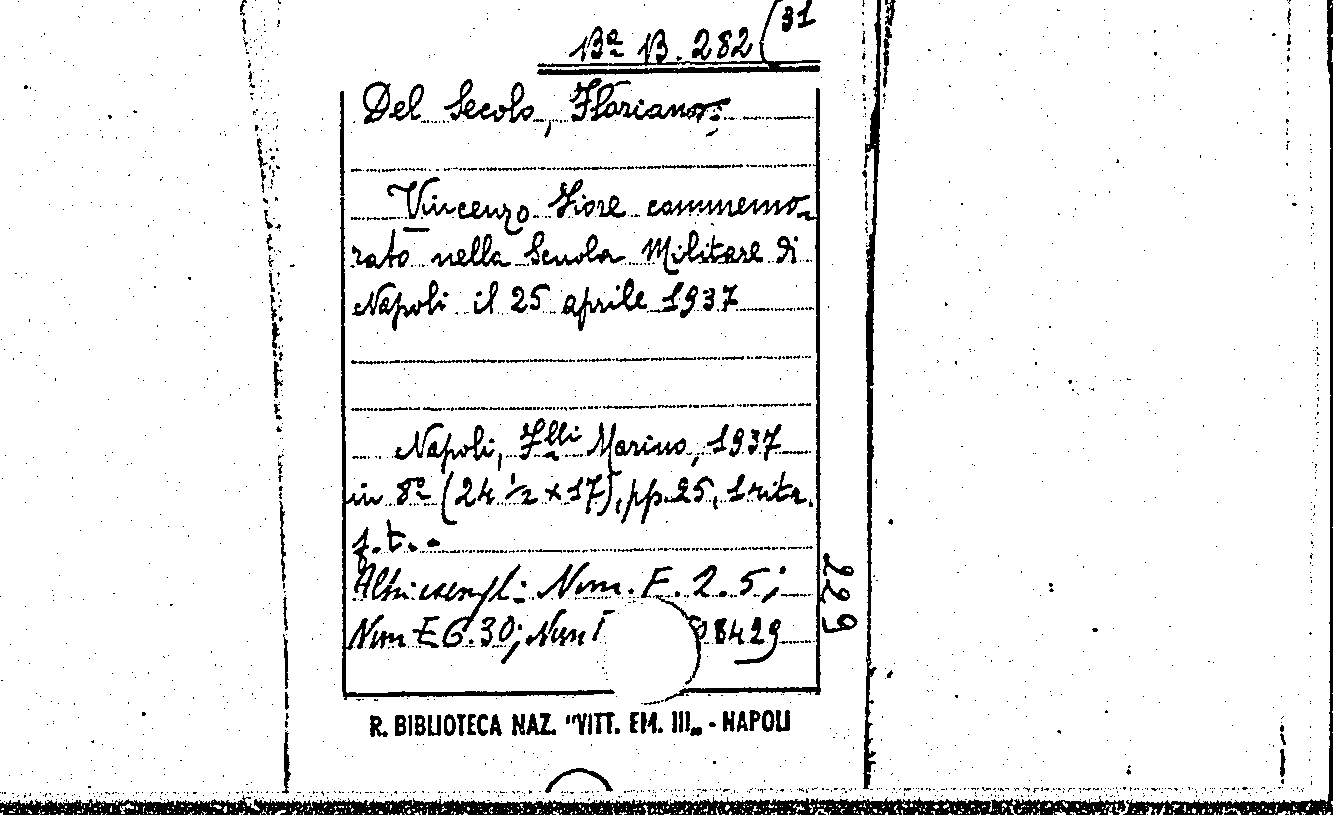 Bª B. 282 (31
Del Secolo, Floriano:
Vincenzo Fiore commemo-
rato nella Scuola Militare di
Napoli il 25 aprile 1937
Napoli, Flli Marino, 1937
in 8º (24 ½ x 17), pp. 25, 1 ritr.
f. t. -
Altri esempl: Num. F. 2. 5;
Num E 6. 30; Num 8429
229
R. BIBLIOTECA NAZ. "VITT. EM. III„ - NAPOLI